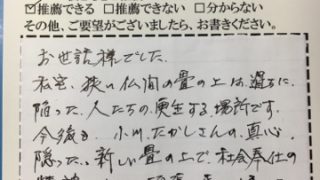 ☑推薦できる □推薦できない □分からない
その他、ご要望がございましたら、お書きください。
お世話様でした。
私宅、狭い仏間の畳の上は、過ちに
陥った、人たちの更生する場所です。
今後も、小川たかしさんの真心
隠った、新しい畳の上で、社会奉仕の
精神